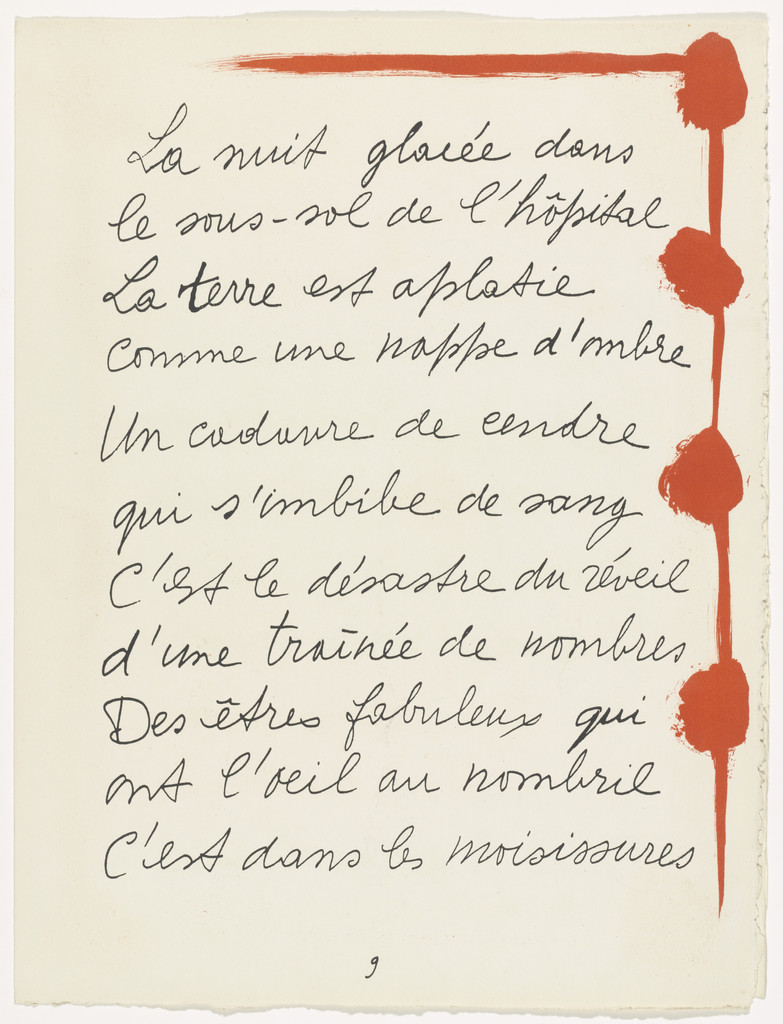 La nuit glacée dans
le sous-sol de l'hôpital
La terre est aplatie
comme une nappe d'ombre
Un cadavre de cendre
qui s'imbibe de sang
C'est le désastre du réveil
d'une traînée de nombres
Des êtres fabuleux qui
ont l'oeil au nombril
C'est dans les moisissures
9